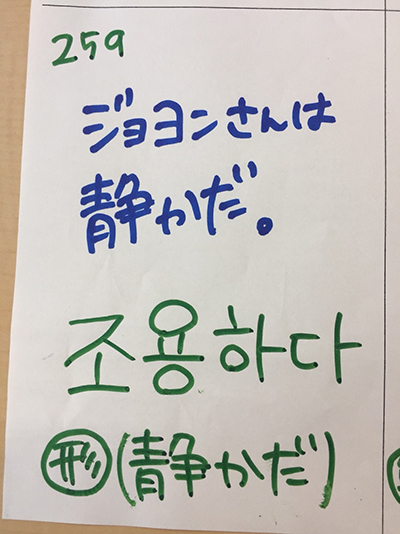 259
ジョヨンさんは
静かだ。
조용하다
形(静かだ)